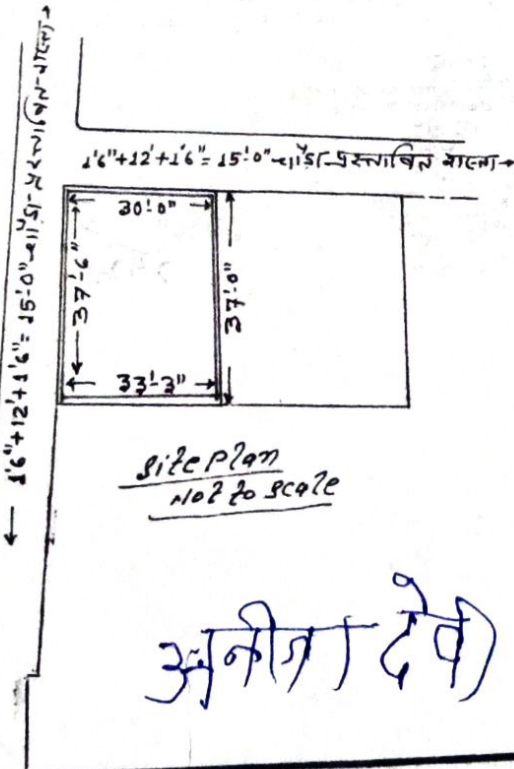 1'6"+12'+1'6"= 15'-0" चौड़ा प्रस्तावित रास्ता→
← 1'6"+12'+1'6"= 15'-0" चौड़ा प्रस्तावित रास्ता→
30'-0"
37'-6"
37'-0"
33'-3"
site plan
Not to scale
अनीता देवी